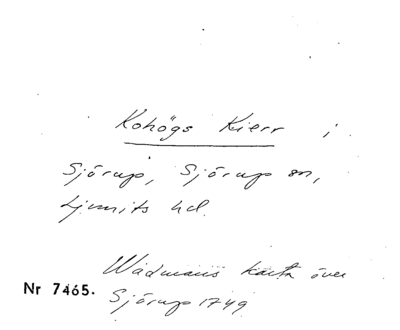 Kohögs Kierr i
Sjörup, Sjörup sn,
Ljunits hd.
Wadmans karta över
Nr 7465.
Sjörup 1749